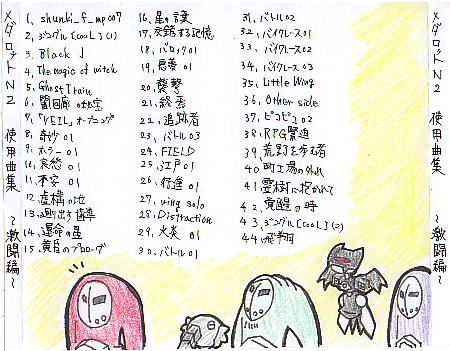 メダロットN2 使用曲集 〜激闘編〜
1. shunki_f_mp007
2. ジングル[cool](1)
3. Black J
4. The magic of witch
5. Ghost Train
6. 闇回廊の地室
7. 「VEIL」オープニング
8. 奇妙01
9. ホラー01
10. 哀愁01
11. 不安01
12. 虚構の地
13. 廻り出す歯車
14. 運命の星
15. 黄昏のプロローグ
16. 星の謙
17. 交錯する記憶
18. バロック01
19. 悪夢01
20. 襲撃
21. 終焉
22. 追跡者
23. バトル03
24. FIELD
25. 江戸01
26. 行進01
27. wing solo
28. Distraction
29. 火炎01
30. バトル01
31. バトル02
32. バイクレース01
33. バイクレース02
34. バイクレース03
35. Little Wing
36. Other side
37. ピコピコ02
38. RPG緊迫
39. 荒野を歩む者
40. 町工場の外れ
41. 霊樹に抱かれて
42. 覚醒の時
43. ジングル[cool](2)
44. 飛
メダロットN2 使用曲集 〜激闘編〜